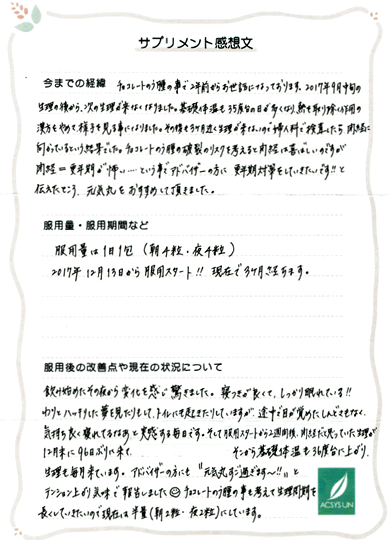 サプリメント感想文
今までの経緯 チョコレートのう腫の事で2年前からお世話になっております。2017年9月中旬の
生理の後から、次の生理が来なくなりました。基礎体温も35度台の日が多くなり、熱を取り除く作用の
漢方をやめて様子を見る事になりました。その後も3ヶ月近く生理が来ないので婦人科で検査したら閉経に
向かっているという結果でした。チョコレートのう腫の破裂のリスクを考えると閉経は喜ばしいのですが
閉経=更年期が怖い…という事でアドバイザーの方に更年期対策をしていきたいです!!と
伝えたところ、元気丸をおすすめして頂きました。
服用量・服用期間など
服用量は1日1包(朝4粒・夜4粒)
2017年12月13日から服用スタート!! 現在で3ヶ月経ちます。
服用後の改善点や現在の状況について
飲み始めたその夜から変化を感じ驚きました。寝つきが良くて、しっかり眠れている!!
わりとハッキリした夢を見たりもして、トイレにも起きたりしていますが、途中で目が覚めたしんどさもなく、
気持ち良く寝れてるなあと実感する毎日です。そして服用スタートから2週間後、閉経だと思っていた生理が
12月末に96日ぶりに来て、 そこから基礎体温も36度台に上がり、
生理も毎月来ています。アドバイザーの方にも"元気丸すご過ぎます~!!"と
テンション上がり気味で報告しました☺チョコレートのう腫の事も考えて生理周期を
長くしていきたいので現在は半量(朝2粒・夜2粒)にしています。
ACSYSUN